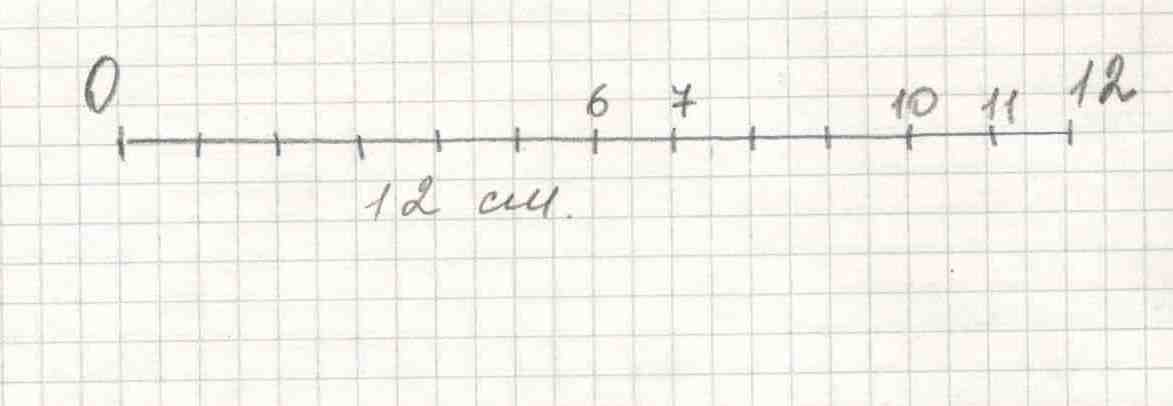 0 6 7 10 11 12
12 см.